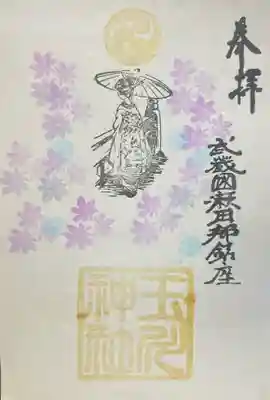 奉拝
武蔵國郡鎮座
玉川
神社